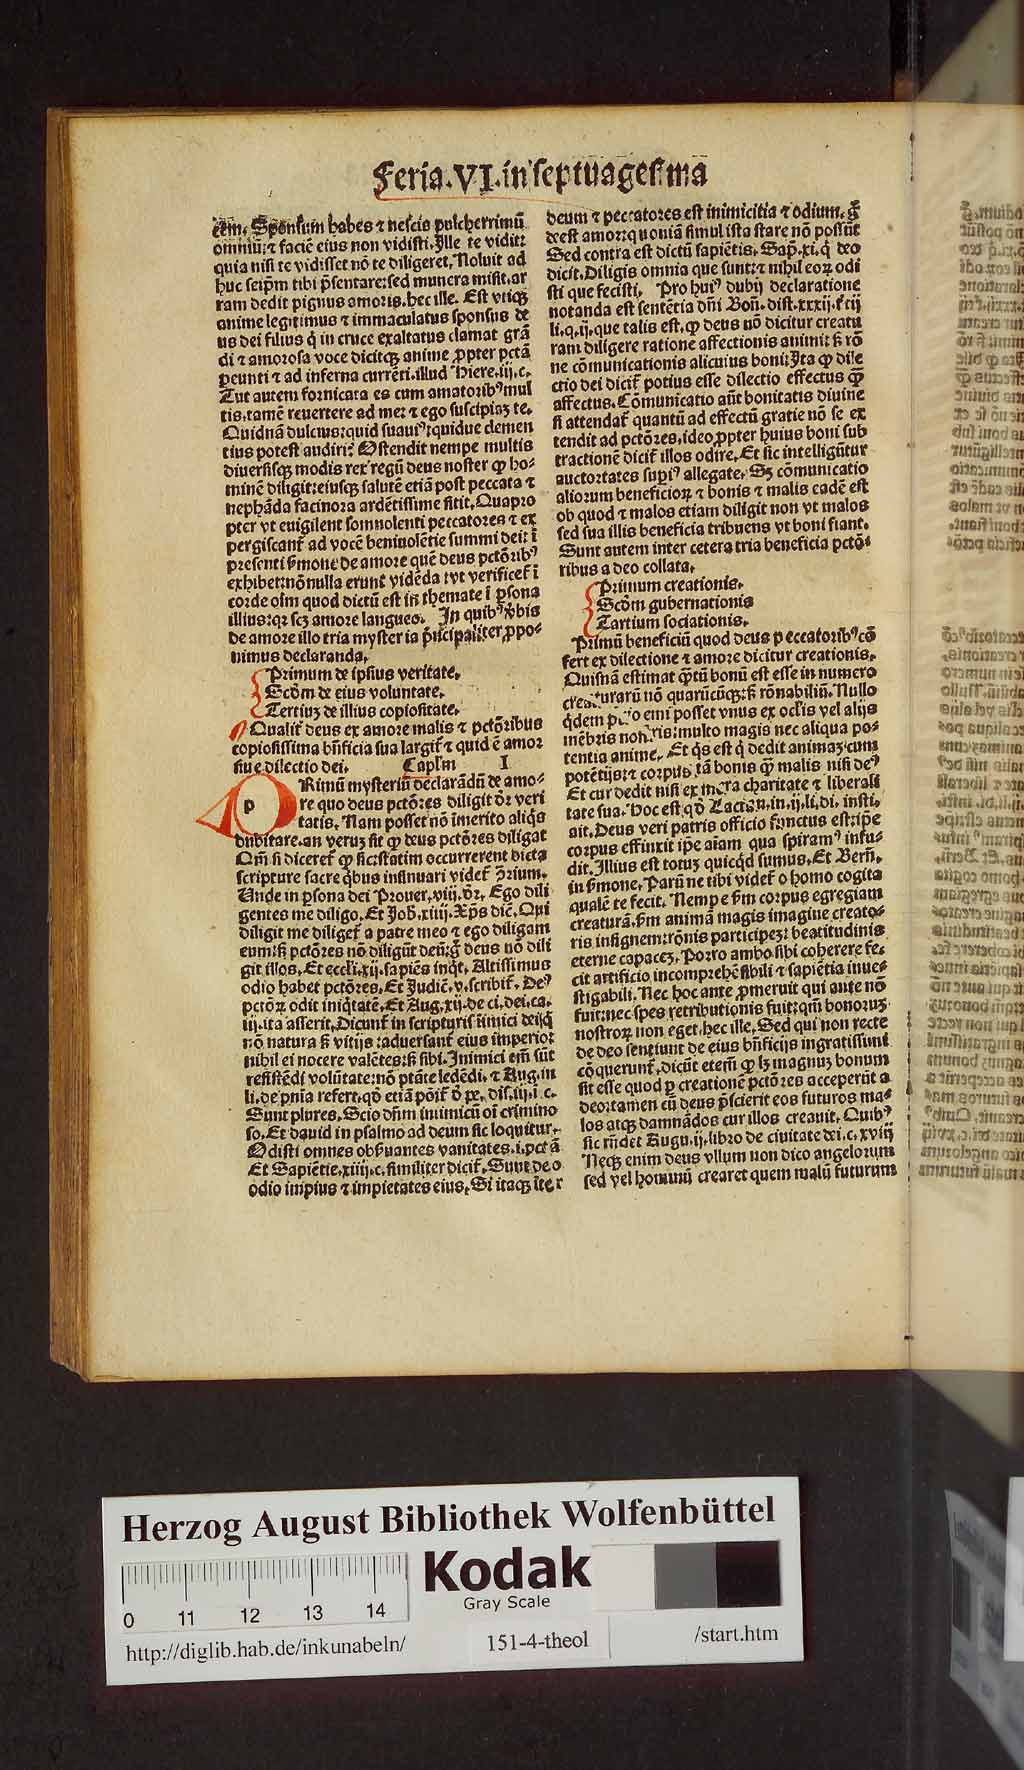 Feria.VI.in septuagesima
tem. Sponsum habes ⁊ nescis pulcherrimū
omniū: ⁊ faciē eius non vidisti. Ille te vidit:
quia nisi te vidisset nō te diligeret. Noluit ad
huc seip̄m tibi p̄sentare: sed munera misit. ar
ram dedit pignus amoris. hec ille. Est vtiqꝫ
anime legitimus ⁊ immaculatus sponsus de
us dei filius q̇ in cruce exaltatus clamat grā
di ⁊ amorosa voce dicitqꝫ anime ꝓpter pctā
ꝑeunti ⁊ ad inferna currēti. illud Hiere.iij.c.
Tu autem fornicata es cum amatoribꝰ mul
tis. tamē reuertere ad me: ⁊ ego suscipiaꝫ te.
Quidnā dulcius: quid suauiꝰ: quidue clemen
tius potest audiri? Ostendit nempe multis
diuersisqꝫ modis rex regū deus noster ꝙ ho-
minē diligit: eiusqꝫ salutē etiā post peccata ⁊
nephāda facinora ardētissime sitit. Quapro
pter vt euigilent somnolenti peccatores ⁊ ex
pergiscant̄ ad vocē beniuolētie summi dei: ī
presenti s̄mone de amore quē deus pctōribꝰ
exhibet: nōnulla erunt vidēda: vt verificet̄ ī
corde oīm quod dictū est in themate ī ꝑsona
illius: qꝛ scꝫ amore langueo. In quibꝰ v̄bis
de amore illo tria mysteria p̄ncipaliter ꝓpo-
nimus declaranda.
Primum de ipsius veritate.
Scōm de eius voluntate.
Tertiuꝫ de illius copiositate.
Qualit̄ deus ex amore malis ⁊ pctōribus
copiosissima bn̄ficia sua largit̄ ⁊ quid ē amor
siue dilectio dei. Caplm I
PRimū mysteriū declarādū de amo-
re quo deus pctōres diligit dr̄ veri
tatis. Nam posset nō īmerito aliq̇s
dubitare. an veruꝫ sit ꝙ deus pctōres diligat
Qm̄ si diceret̄ ꝙ sic: statim occurrerent dicta
scripture sacre q̇bus insinuari videt̄ ↄ̄rium.
Unde in ꝑsona dei Prouer.viij. dr̄. Ego dili
gentes me diligo. Et Joh̄.xiiij. Xp̄s dic̄. Qui
diligit me diliget̄ a patre meo ⁊ ego diligam
eum: s̄ꝫ pctōres nō diligūt deū: g̊ deus nō dili
git illos. Et eccl̄i.xij. sapiēs inq̇t. Altissimus
odio habet pctōres. Et Judic̄.v. scribit̄. Deꝰ
pctōꝝ odit iniq̇tatē. Et Aug.xij. de ci. dei. ca.
iij. ita asserit. Dicunt̄ in scripturis īimici dei: q̇
nō natura s̄ꝫ vitijs: aduersant̄ eius imperio:
nihil ei nocere valētes: s̄ꝫ sibi. Inimici em̄ sūt
resistēdi volūtate: nō ptāte ledēdi. ⁊ Aug. in
li. de pnīa refert. qō etiā pōit̄ ō pe. dis.iij. i. c.
Sunt plures. Scio dn̄m inimicū oī crimino
so. Et dauid in psalmo ad deum sic loquitur.
Odisti omnes obẜuantes vanitates. i. pctā
Et Sapiētie.xiiij.c. similiter dicit̄. Sunt deo
odio impius ⁊ impietates eius. Si itaqꝫ īter
deum ⁊ peccatores est inimicitia ⁊ odium. g̊
deest amor: quoniā simul ista stare nō possūt
Sed contra est dictū sapiētis. Sap̄.xi. q̇ deo
dicit. Diligis omnia que sunt: ⁊ nihil eoꝝ odi
sti que fecisti. Pro huiꝰ dubij declaratione
notanda est sentētia dn̄i Bon̄. dist.xxxij. ī tij
li.q.ij. que talis est. ꝙ deus nō dicitur creatu
ram diligere ratione affectionis animi: s̄ꝫ rō
ne cōmunicationis alicuius boni: Ita ꝙ dile
ctio dei dicit̄ potius esse dilectio effectus ꝙ̄
affectus. Cōmunicatio aūt bonitatis diuine
si attendat̄ quantū ad effectū gratie nō se ex
tendit ad pctōres. ideo ꝓpter huius boni sub
tractionē dicit̄ illos odire. Et sic intelligūtur
auctoritates supiꝰ allegate. Sꝫ cōmunicatio
aliorum beneficioꝝ ⁊ bonis ⁊ malis eadē est
ob quod ⁊ malos etiam diligit non vt malos
sed sua illis beneficia tribuens vt boni fiant.
Sunt autem inter cetera tria beneficia pctō-
ribus a deo collata.
Primum creationis.
Scōm gubernationis
Tartium sociationis.
Primū beneficiū quod deus peccatoribꝰ cō
fert ex dilectione ⁊ amore dicitur creationis.
Quisnā estimat q̄tū bonū est esse in numero
creaturarū nō quarūcūqꝫ: s̄ꝫ rōnabiliū. Nullo
q̇dem p emi posset vnus ex oclīs vel alijs
mēbris nostris: multo magis nec aliqua po-
tentia anime. Et q̇s est q̇ dedit animaꝫ cum
potētijs: ⁊ corpus tā bonis ꝙ̄ malis nisi deꝰ
Et cur dedit nisi ex mera charitate ⁊ liberali
tate sua. Hoc est qḋ Lactan. in.ij.li. di. insti.
ait. Deus veri patris officio functus est: ip̄e
corpus effinxit ip̄e aīam qua spiramꝰ infu-
dit. Illius est totuꝫ quicq̇d sumus. Et Bern̄.
in s̄mone. Parū ne tibi videt̄ o homo cogita
qualē te fecit. Nempe s̄m corpus egregiam
creaturā. s̄m animā magis imagine creato-
ris insignem: rōnis participeꝫ: beatitudinis
eterne capaceꝫ. Porro ambo sibi coherere fe-
cit artificio incomprehēsibili ⁊ sapiētia inue-
stigabili. Nec hoc ante ꝓmeruit qui ante nō
fuit: nec spes retributionis fuit: qm̄ bonoruꝫ
nostroꝝ non eget. hec ille. Sed qui non recte
de deo sentiunt de eius bn̄ficijs ingratissimi
cōquerunt̄. dicūt etem̄ ꝙ lꝫ magnuꝫ bonum
sit esse quod ꝑ creationē pctōres acceperūt a
deo: tamen cū deus p̄scierit eos futuros ma-
los atqꝫ damnādos cur illos creauit. Quibꝰ
sic rn̄det Augu.ij. libro de ciuitate dei.c.xviij
Neqꝫ enim deus vllum non dico angelorum
sed vel hominū crearet quem malū futurum
Herzog August Bibliothek Wolfenbüttel
Kodak
Gray Scale
0 11 12 13 14
http://diglib.hab.de/inkunabeln/ 151-4-theol /start.htm